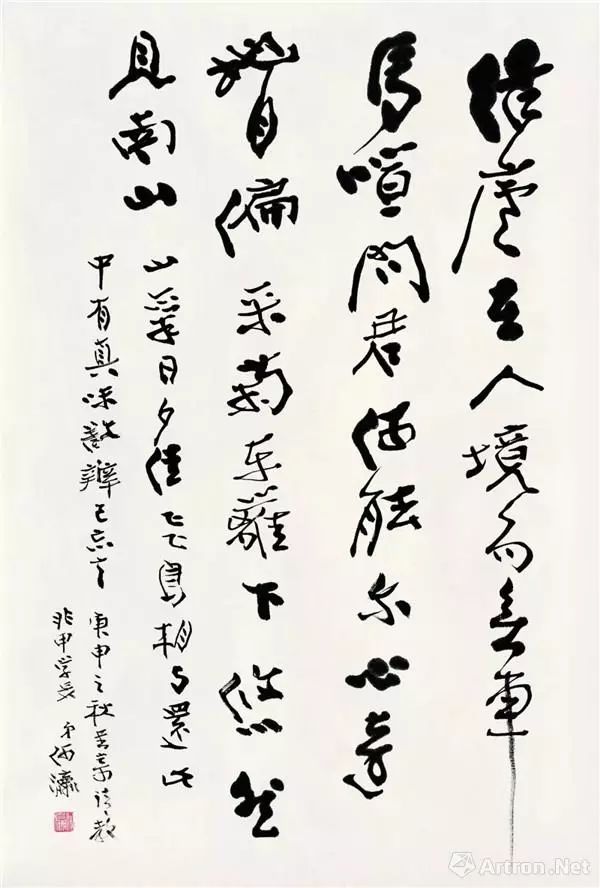 結廬在人境而無車
馬喧問君何能尔心遠
地自偏采菊東籬下悠然
見南山
山氣日夕佳飛鳥相与還此
中有真味欲辯已忘言
庚申之秋書請教
非甲学長 弟何瀛
Artron.Net